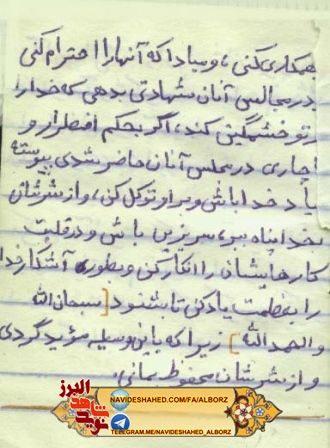 همکاری کنی، و مبادا که آنها را احترام کنی
در مجالس آنان شهادتی بدهی که خدا را
بر تو خشمگین کند، اگر بحکم اضطرار و
اچاری در مجلس آنان حاضر شدی پیوسته
یاد خدا باش و بر او توکل کن، و از شرشان
بخدا پناه ببر، سر بزیر باش و در قلبت
کارهایشان را انکار کن و بطوری آشکار خدا
را بعظمت یاد کن تا بشنود [سبحان الله
والحمدالله] زیرا که باین وسیله مؤید گردی
و از شرشان محفوظ بمانی.
البرز
نوید شاهد
NAVIDESHAHED.COM/FA/ALBORZ
TELEGRAM.ME/NAVIDESHAHED_ALBORZ